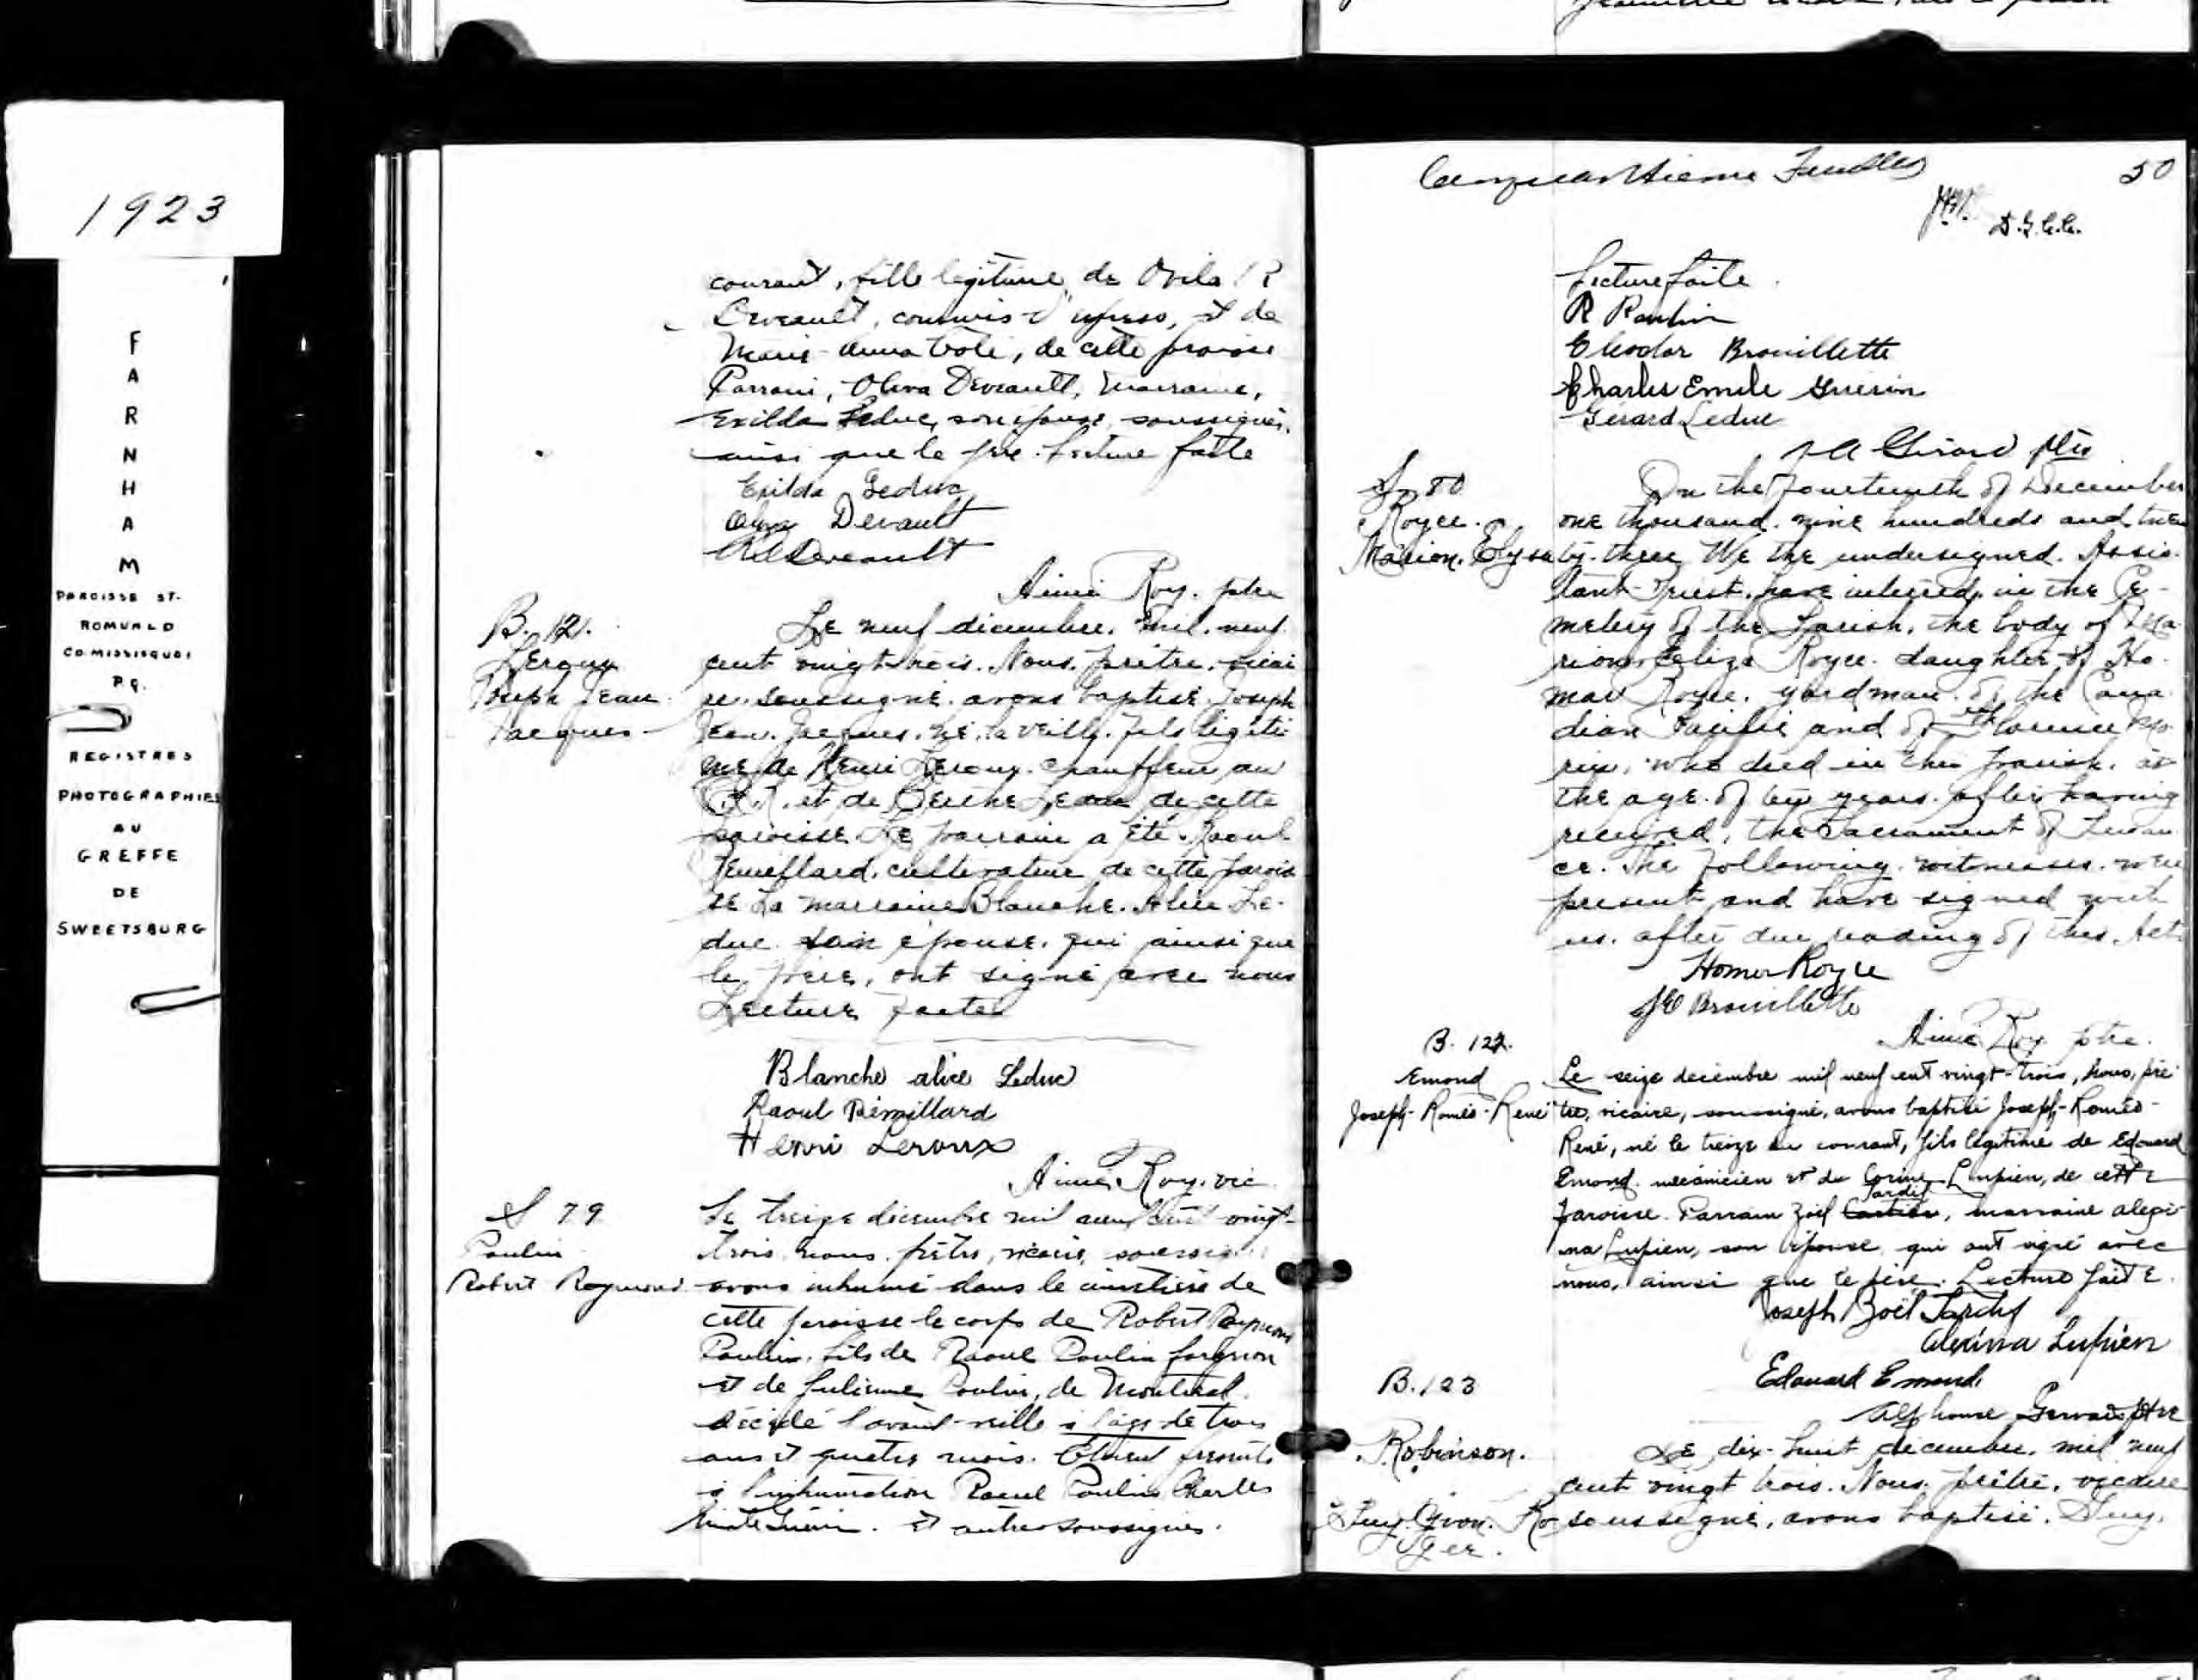 1923
FARNHAM
PAROISSE ST-
ROMUALD
CO MISSISQUOI
P.Q.
REGISTRES
PHOTOGRAPHIES
AU
GREFFE
DE
SWEETSBURG
courant, fille légitime de Ovila
Devreault, commis d'express, et de
Marie-Anna, de cette paroisse
Parrain, Oliva Devreault, marraine,
Exilda Leduc, son épouse, soussignés,
ainsi que le père. Lecture faite
Exilda Leduc
Devault
Devreault
Aimé Roy. ptre
B. 121.
Leroux
Joseph Jean
Jacques
Le neuf décembre, mil. neuf
cent vingt trois. Nous. prêtre. vicai
re. soussigné. avons baptisé. Joseph
Jean. Jacques. né. la veille. fils légiti
me de Henri Leroux. chauffeur au
et de Berthe Leduc de cette
paroisse. Le parrain a été. Raoul
Remillard. cultivateur de cette parois
se La marraine Blanche. Alice Le-
duc son épouse. qui ainsi que
le père, ont signé avec nous
Lecture faite
Blanche alice Leduc
Raoul Rémillard
Henri Leroux
Aimé Roy. vic
S 79
Poulin
Robert Raymond
Le treize décembre mil neuf cent vingt-
trois, nous prêtre, vicaire, soussigné
avons inhumé dans le cimetière de
cette paroisse le corps de Robert Raymond
Poulin, fils de Raoul Poulin forgeron
et de Julienne Poulin, de Montréal.
décédé l'avant-veille à l'âge de trois
ans et quatre mois. Étaient présents
à l'inhumation Raoul Poulin Charles
Emile Guérin. et autres soussignés.
Cinquantieme Feuillet 50
Lecture faite.
R Poulin
Cléodor Brouillette
Charles Emile Guérin
Gérard Leduc
J A Girard ptre
S. 80
Royce.
Marion. Elysa
On the fourteenth of December
one thousand. nine hundreds and twen
ty-three We the undersigned. Assis-
tant Priest. have interred. in the Ce-
metery of the Parish, the body of Ma
rion Eliza Royce. daughter of Ho-
mer Royce. yardman. of the Cana
dian Pacific and of Florence
who died in this Parish. at
the age of years. after having
received, the Sacrament of Penan
ce. The following. witnesses. were
present and have signed with
us. after due reading of this. Act
Homer Royce
Brouillette
Aimé Roy ptre.
B. 122.
Emond
Joseph-Roméo-René
Le seize décembre mil neuf cent vingt-trois, nous, prê-
tre, vicaire, soussigné, avons baptisé Joseph-Roméo-
René, né le treize du courant, fils légitime de Edouard
Emond mécanicien et de Corine Lupien, de cette
Tardif
paroisse. Parrain Zoël Cartier, marraine alexi-
na Lupien, son épouse, qui ont signé avec
nous, ainsi que le père. Lecture faite.
Joseph Zoël Tardif
Alexina Lupien
Edouard Emond
Alphonse Gervais ptre
B. 123
Robinson.
Guy. Yvon. Ro
ger.
Le dix-huit décembre. mil neuf
cent vingt trois. Nous. prêtre. vicaire
soussigné, avons baptisé. Guy.